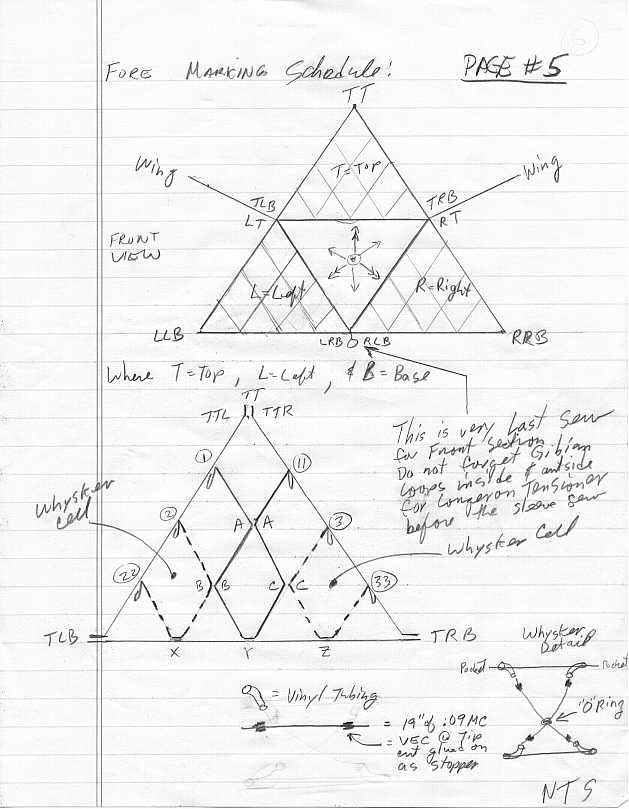 5
FORE MARKING Schedule! PAGE #5
TT
Wing Wing
T=Top
TLB TRB
LT RT
FRONT
VIEW
L=Left R=Right
LLB LRB RLB RRB
Where T=Top, L=Left, & B=Base
TT
TTL TTR
This is very last sew
for Front section.
Do not forget Gibian
Loops inside & outside
for Longeron Tensioner
before the sleeve sew
1 11
Whysker
Cell
2 A A 3
Whysker Cell
22 B B C C 33
TLB X Y Z TRB
Whysker
Detail
Pocket Pocket
= Vinyl Tubing
"O" Ring
= 19" of .09 MC
= VEC @ Tip
cut glued on
as stopper
NTS